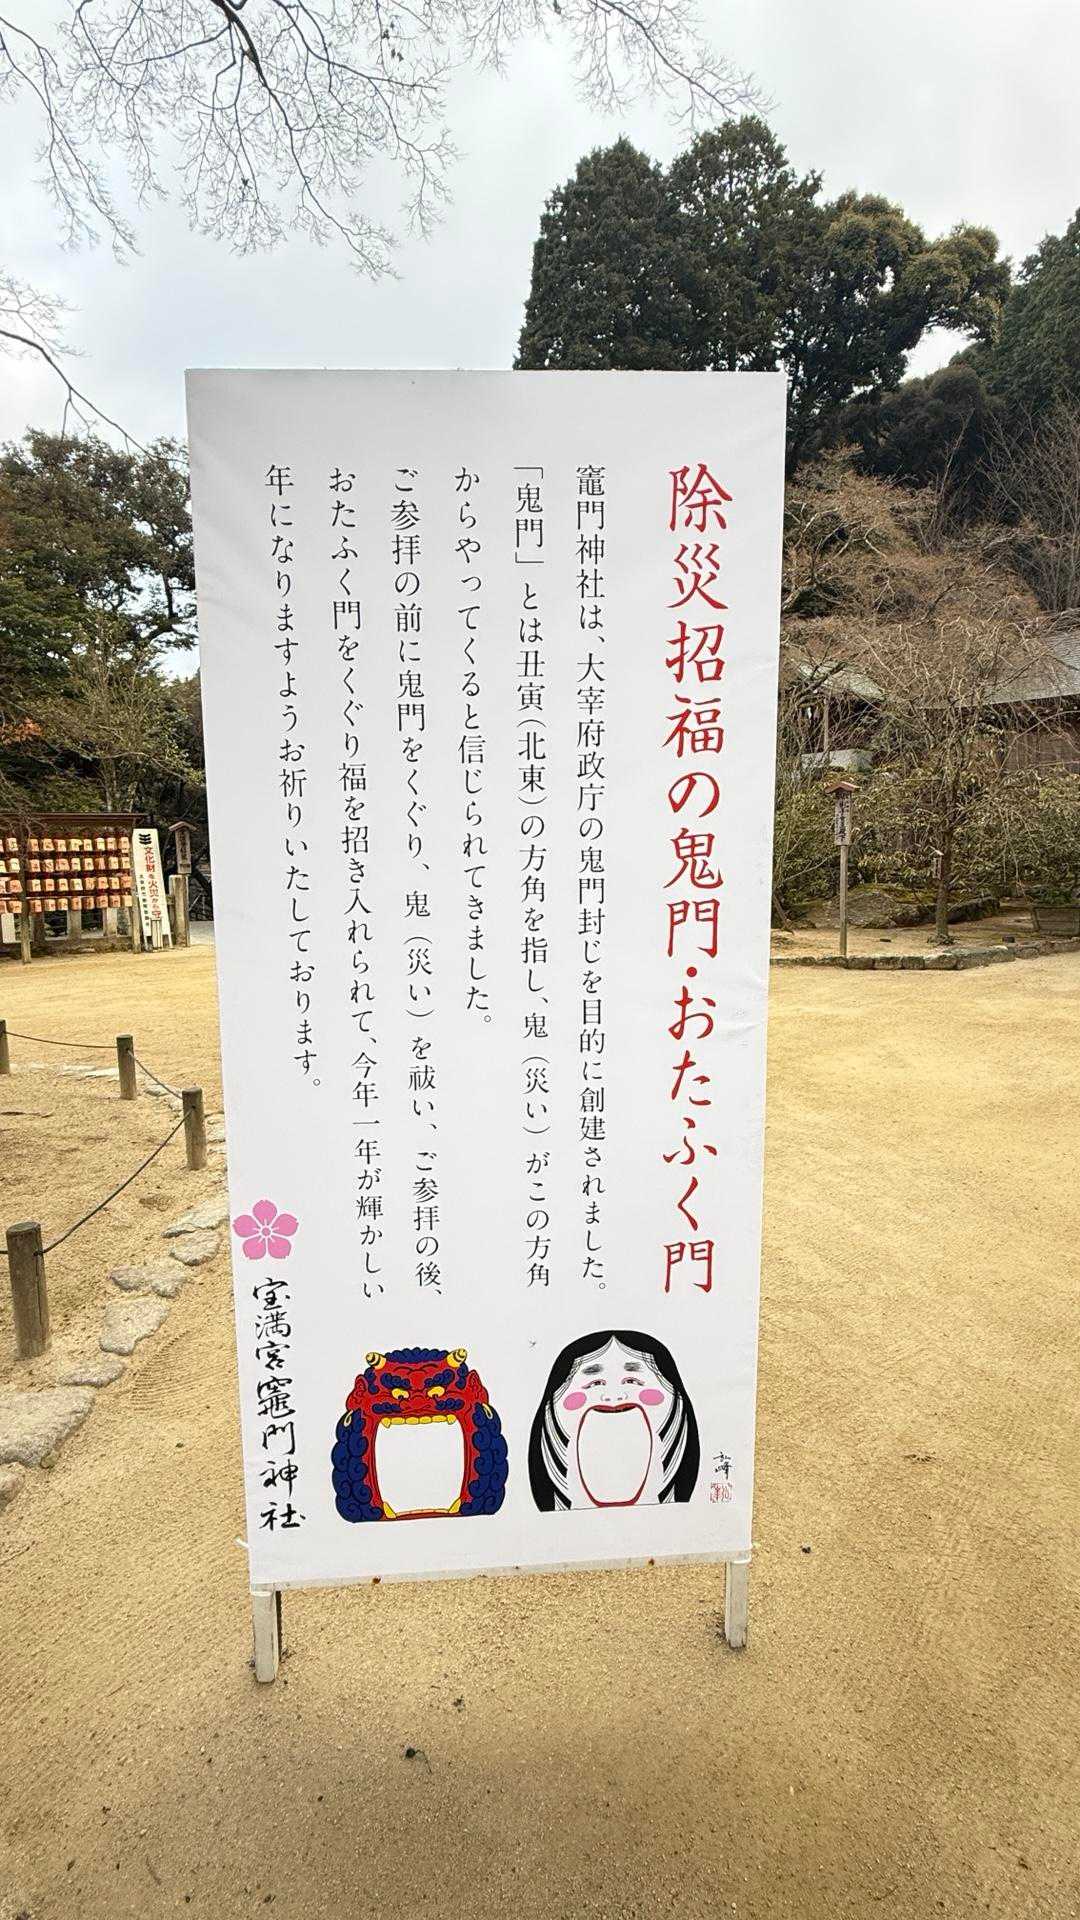 除災招福の鬼門・おたふく門
竈門神社は、大宰府政庁の鬼門封じを目的に創建されました。
「鬼門」とは丑寅(北東)の方角を指し、鬼(災い)がこの方角
からやってくると信じられてきました。
ご参拝の前に鬼門をくぐり、鬼(災い)を祓い、ご参拝の後、
おたふく門をくぐり福を招き入れられて、今年一年が輝かしい
年になりますようお祈りいたしております。
宝満宮竈門神社
文化財を火災から守